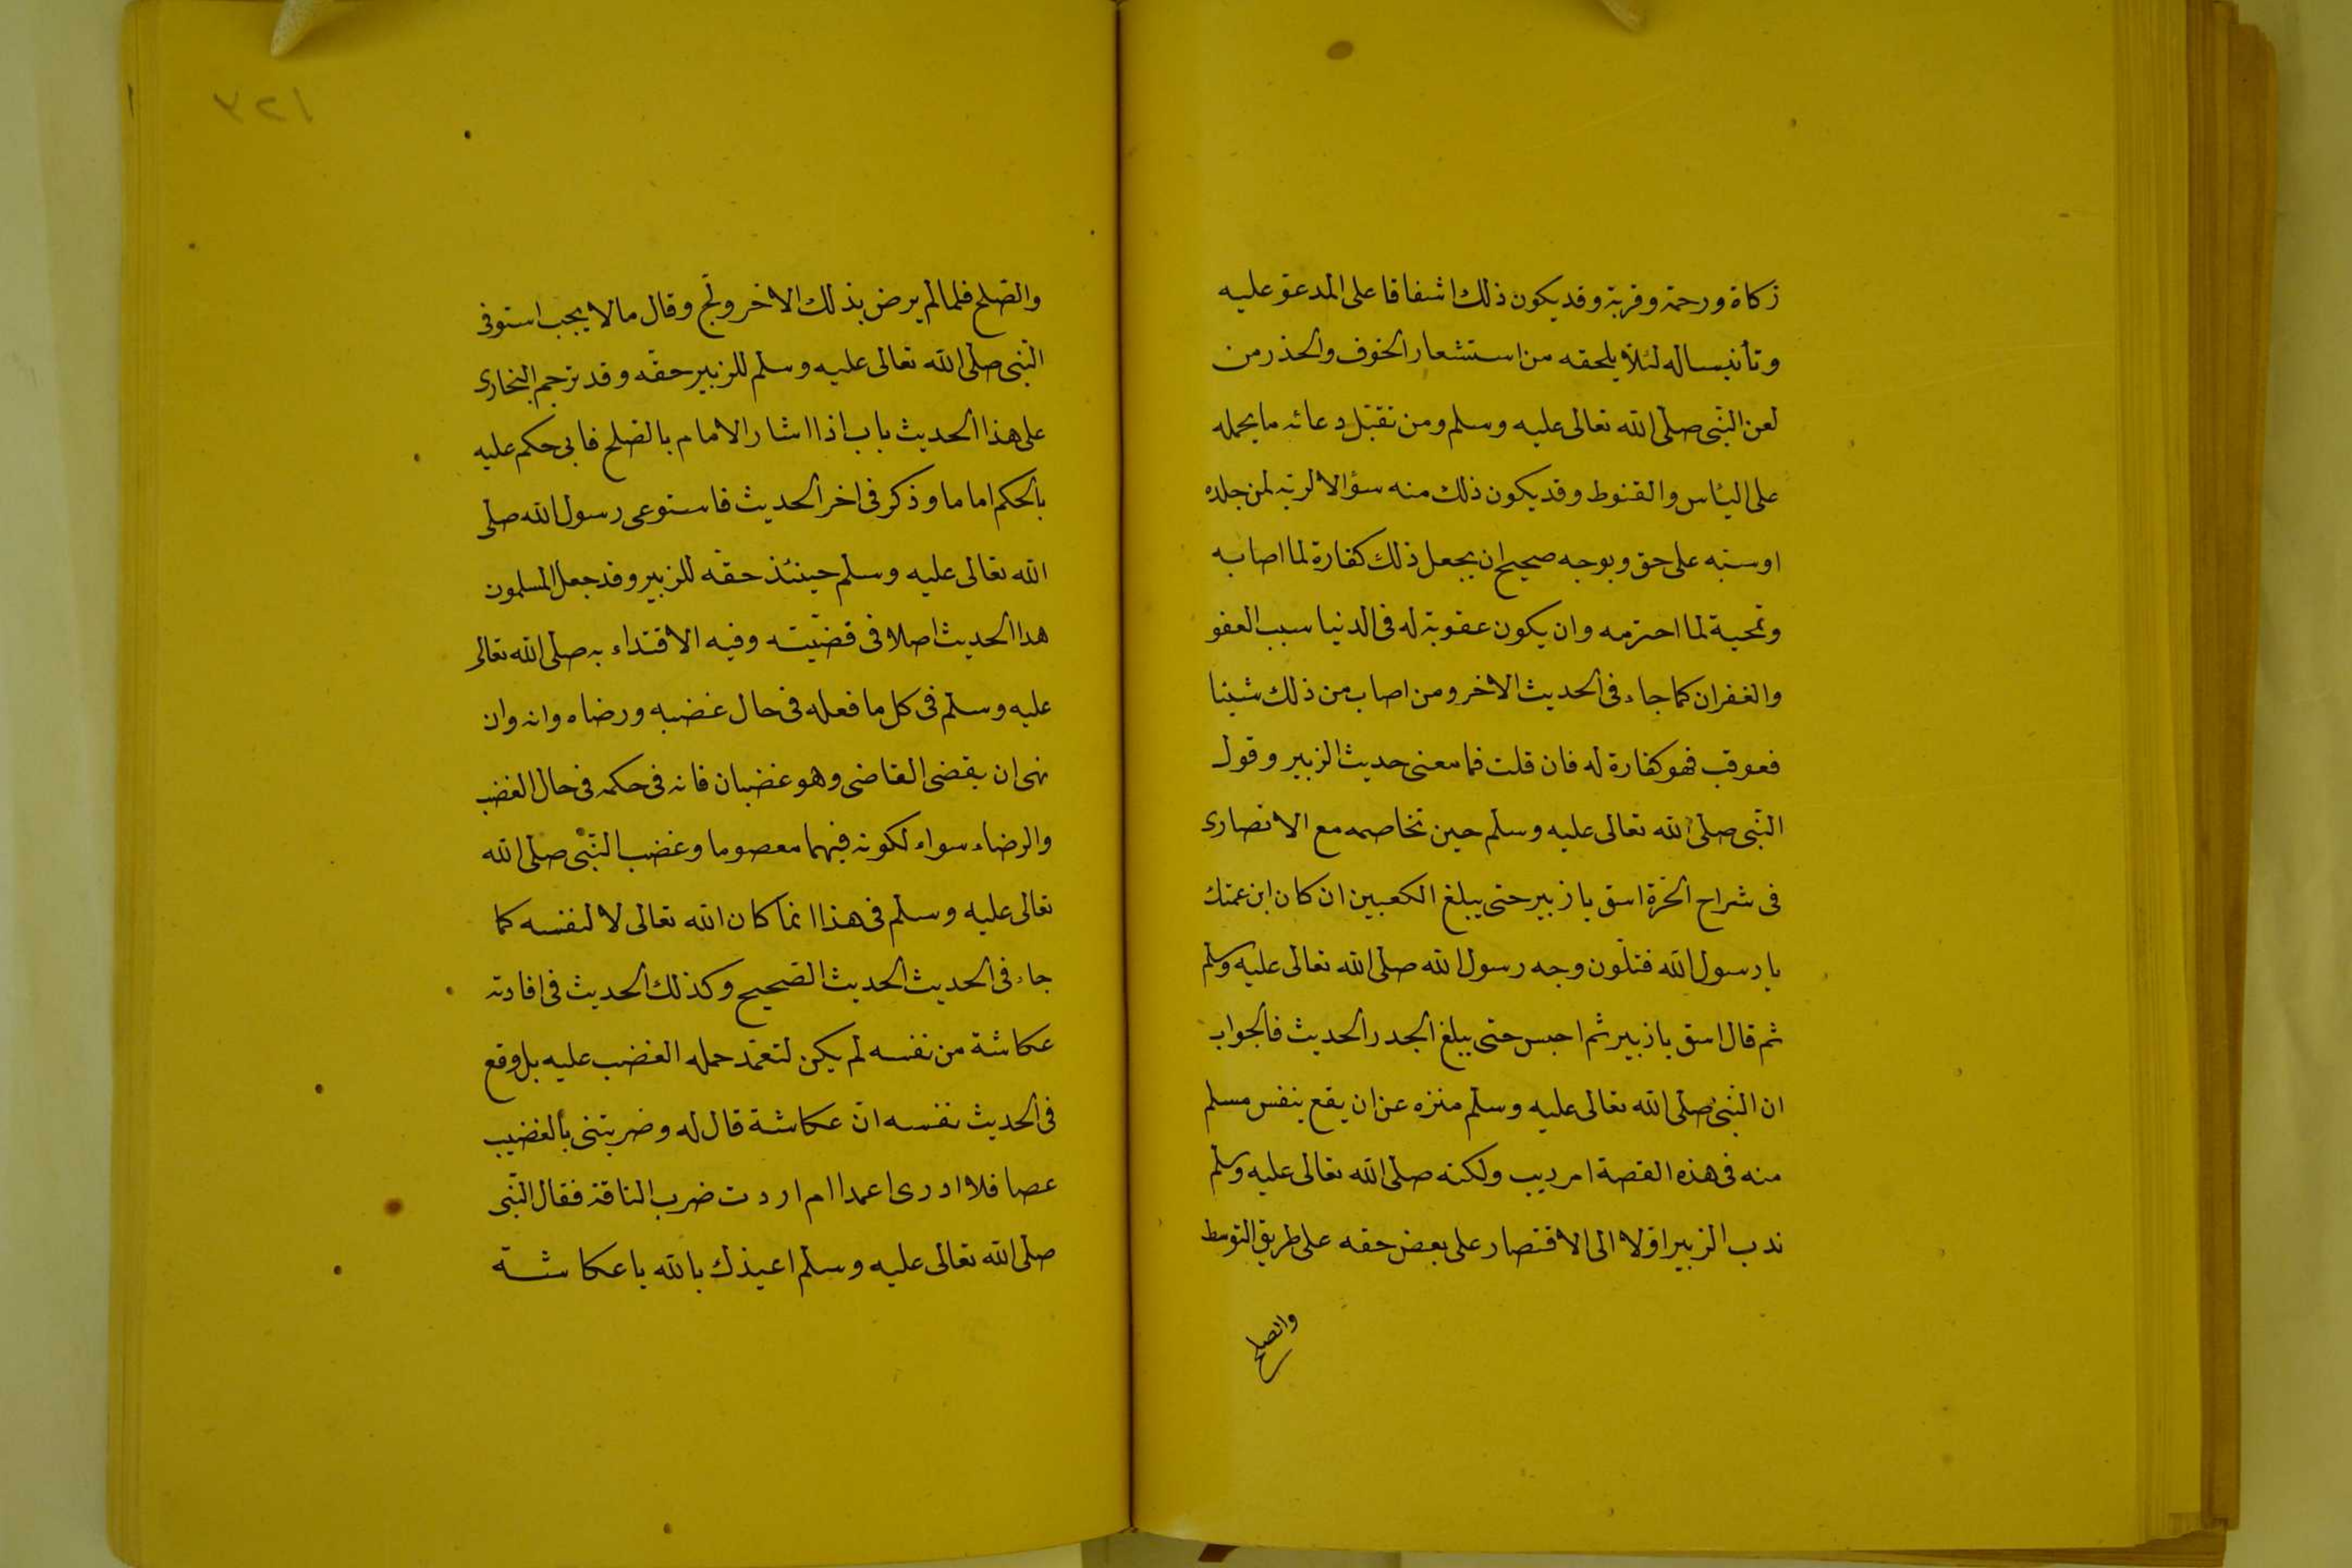 زكاة ورحمة وقربة وقد يكون ذلك اشفاقا على المدعو عليه
وتأنيسا له لئلا يلحقه من استشعار الخوف والحذر من
لعن النبى صلى الله تعالى عليه وسلم ومن تقبل دعائه ما يحمله
على اليأس والقنوط وقد يكون ذلك منه سؤالا لربه لمن جلده
او سبه على حق وبوجه صحيح ان يجعل ذلك كفارة لما اصابه
وتمحية لما اجترمه وان يكون عقوبة له فى الدنيا سبب العفو
والغفران كما جاء فى الحديث الاخر ومن اصاب من ذلك شيئا
فعوقب فهو كفارة له فان قلت فما معنى حديث الزبير وقول
النبى صلى الله تعالى عليه وسلم حين تخاصمه مع الانصارى
فى شراج الحرة اسق يا زبير حتى يبلغ الكعبين ان كان ابن عمتك
يا رسول الله فتلون وجه رسول الله صلى الله تعالى عليه وسلم
ثم قال اسق يا زبير ثم احبس حتى يبلغ الجدر الحديث فالجواب
ان النبى صلى الله تعالى عليه وسلم منزه عن ان يقع بنفس مسلم
منه فى هذه القصة امر يريب ولكنه صلى الله تعالى عليه وسلم
ندب الزبير اولا الى الاقتصار على بعض حقه على طريق التوسط
والصلح
١٢٧
والصلح فلما لم يرض بذلك الاخر ولج وقال ما لا يجب استوفى
النبى صلى الله تعالى عليه وسلم للزبير حقه وقد ترجم البخارى
على هذا الحديث باب اذا اشار الامام بالصلح فابى حكم عليه
بالحكم اماما وذكر فى اخر الحديث فاستوعى رسول الله صلى
الله تعالى عليه وسلم حينئذ حقه للزبير وقد جعل المسلمون
هذا الحديث اصلا فى قضيته وفيه الاقتداء به صلى الله تعالى
عليه وسلم فى كل ما فعله فى حال غضبه ورضاه وانه وان
نهى ان يقضى القاضى وهو غضبان فانه فى حكمه فى حال الغضب
والرضاء سواء لكونه فيهما معصوما وغضب النبى صلى الله
تعالى عليه وسلم فى هذا انما كان الله تعالى لا لنفسه كما
جاء فى الحديث الحديث الصحيح وكذلك الحديث فى اقادته
عكاشة من نفسه لم يكن لتعمد حمله الغضب عليه بل وقع
فى الحديث نفسه ان عكاشة قال له وضربتنى بالغضيب
عصا فلا ادرى اعمدا ام اردت ضرب الناقة فقال النبى
صلى الله تعالى عليه وسلم اعيذك بالله يا عكاشة